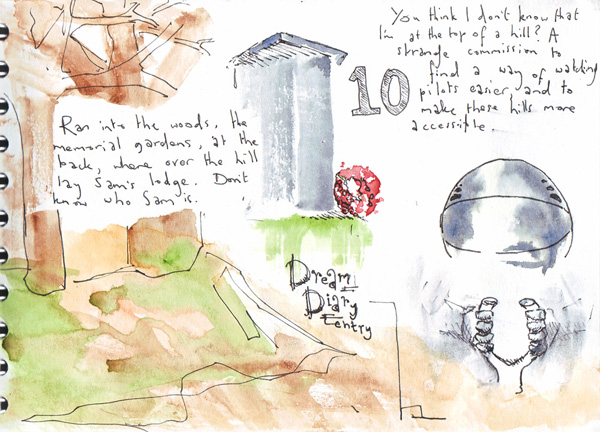 You think I don't know that
I'm at the top of a hill? A
strange commission to
find a way of watching
pilots easier and to
make these hills more
accessible.
10
Ran into the woods, the
memorial gardens, at the
back, where over the hill
lay Sam's lodge. Don't
know who Sam is.
Dream
Diary
entry